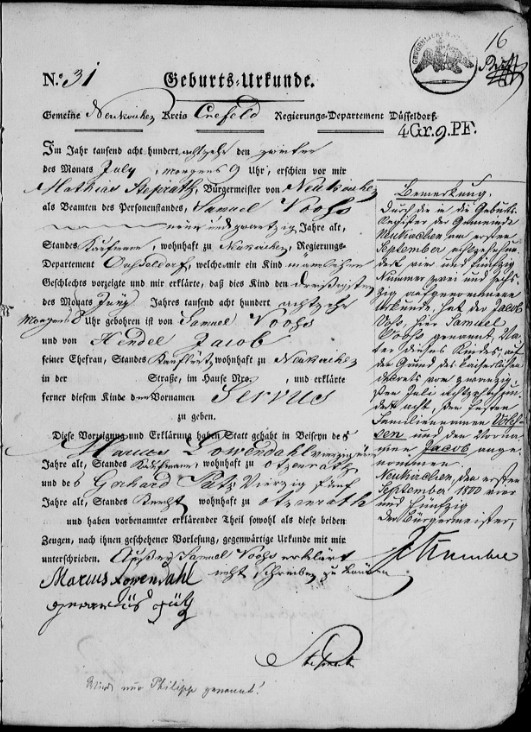 16
No. 31 Geburts-Urkunde.
Gemeine Neukirchen Kreis Crefeld Regierungs-Departement Düsseldorf.
4 Gr. 9. PF.
Im Jahr tausend acht hundert achtzehn den zweiten
des Monats July, morgens 9 Uhr, erschien vor mir
Mathias Stepratz, Bürgermeister von Neukirchen
als Beamten des Personenstandes, Samuel Vooss
neun und zwanzig Jahre alt,
Standes Kaufmann, wohnhaft zu Neukirchen, Regierungs-
Departement Dusseldorf, welche mir ein Kind männlichen
Geschlechts vorzeigte und mir erklärte, daß dies Kind den dreißigsten
des Monats Juny Jahrs tausend acht hundert achtzehn
Morgens Uhr gebohren ist von Samuel Vooss
und von Hendel Jacob
seiner Ehefrau, Standes wohnhaft zu Neukirchen
in der Straße, im Hause Nro. , und erklärte
ferner diesem Kinde den Vornamen Servus
zu geben.
Diese Vorzeigung und Erklärung haben Statt gehabt in Beiseyn des
Marcus Löwendahl vierzig
Jahre alt, Standes Kaufmann, wohnhaft zu otzenrath
und des Gerhard Pütz Vierzig fünf
Jahre alt, Standes Knecht wohnhaft zu otzenrath
und haben vorbenannter erklärender Theil sowohl als diese beiden
Zeugen, nach ihnen geschehener Vorlesung, gegenwärtige Urkunde mit mir
unterschrieben. Außer Samuel Vooss erklärt
nicht schreiben zu können
Marcus Löwendahl
gerardus pütz
Stepratz
Wird nur Philipp genannt!
Bemerkung.
Durch die in die Geburts-
Register der Gemeinde
Neukirchen am ersten
September
vier und fünfzig
Nummer zwei und sech-
zig aufgenommene
Urkunde, hat der Jacob
Voss, hier Samuel
Vooss genannt, Va-
ter dieses Kindes, auf
den Grund des Kaiserlichen
Dekrets vom zwanzig
sten Juli achtzehnhun-
dert acht, den festen
Familiennamen
und den Vorna-
men Jacob ange-
nommen.
Neukirchen, den ersten
September 1800 vier
und fünfzig
der Bürgermeister,